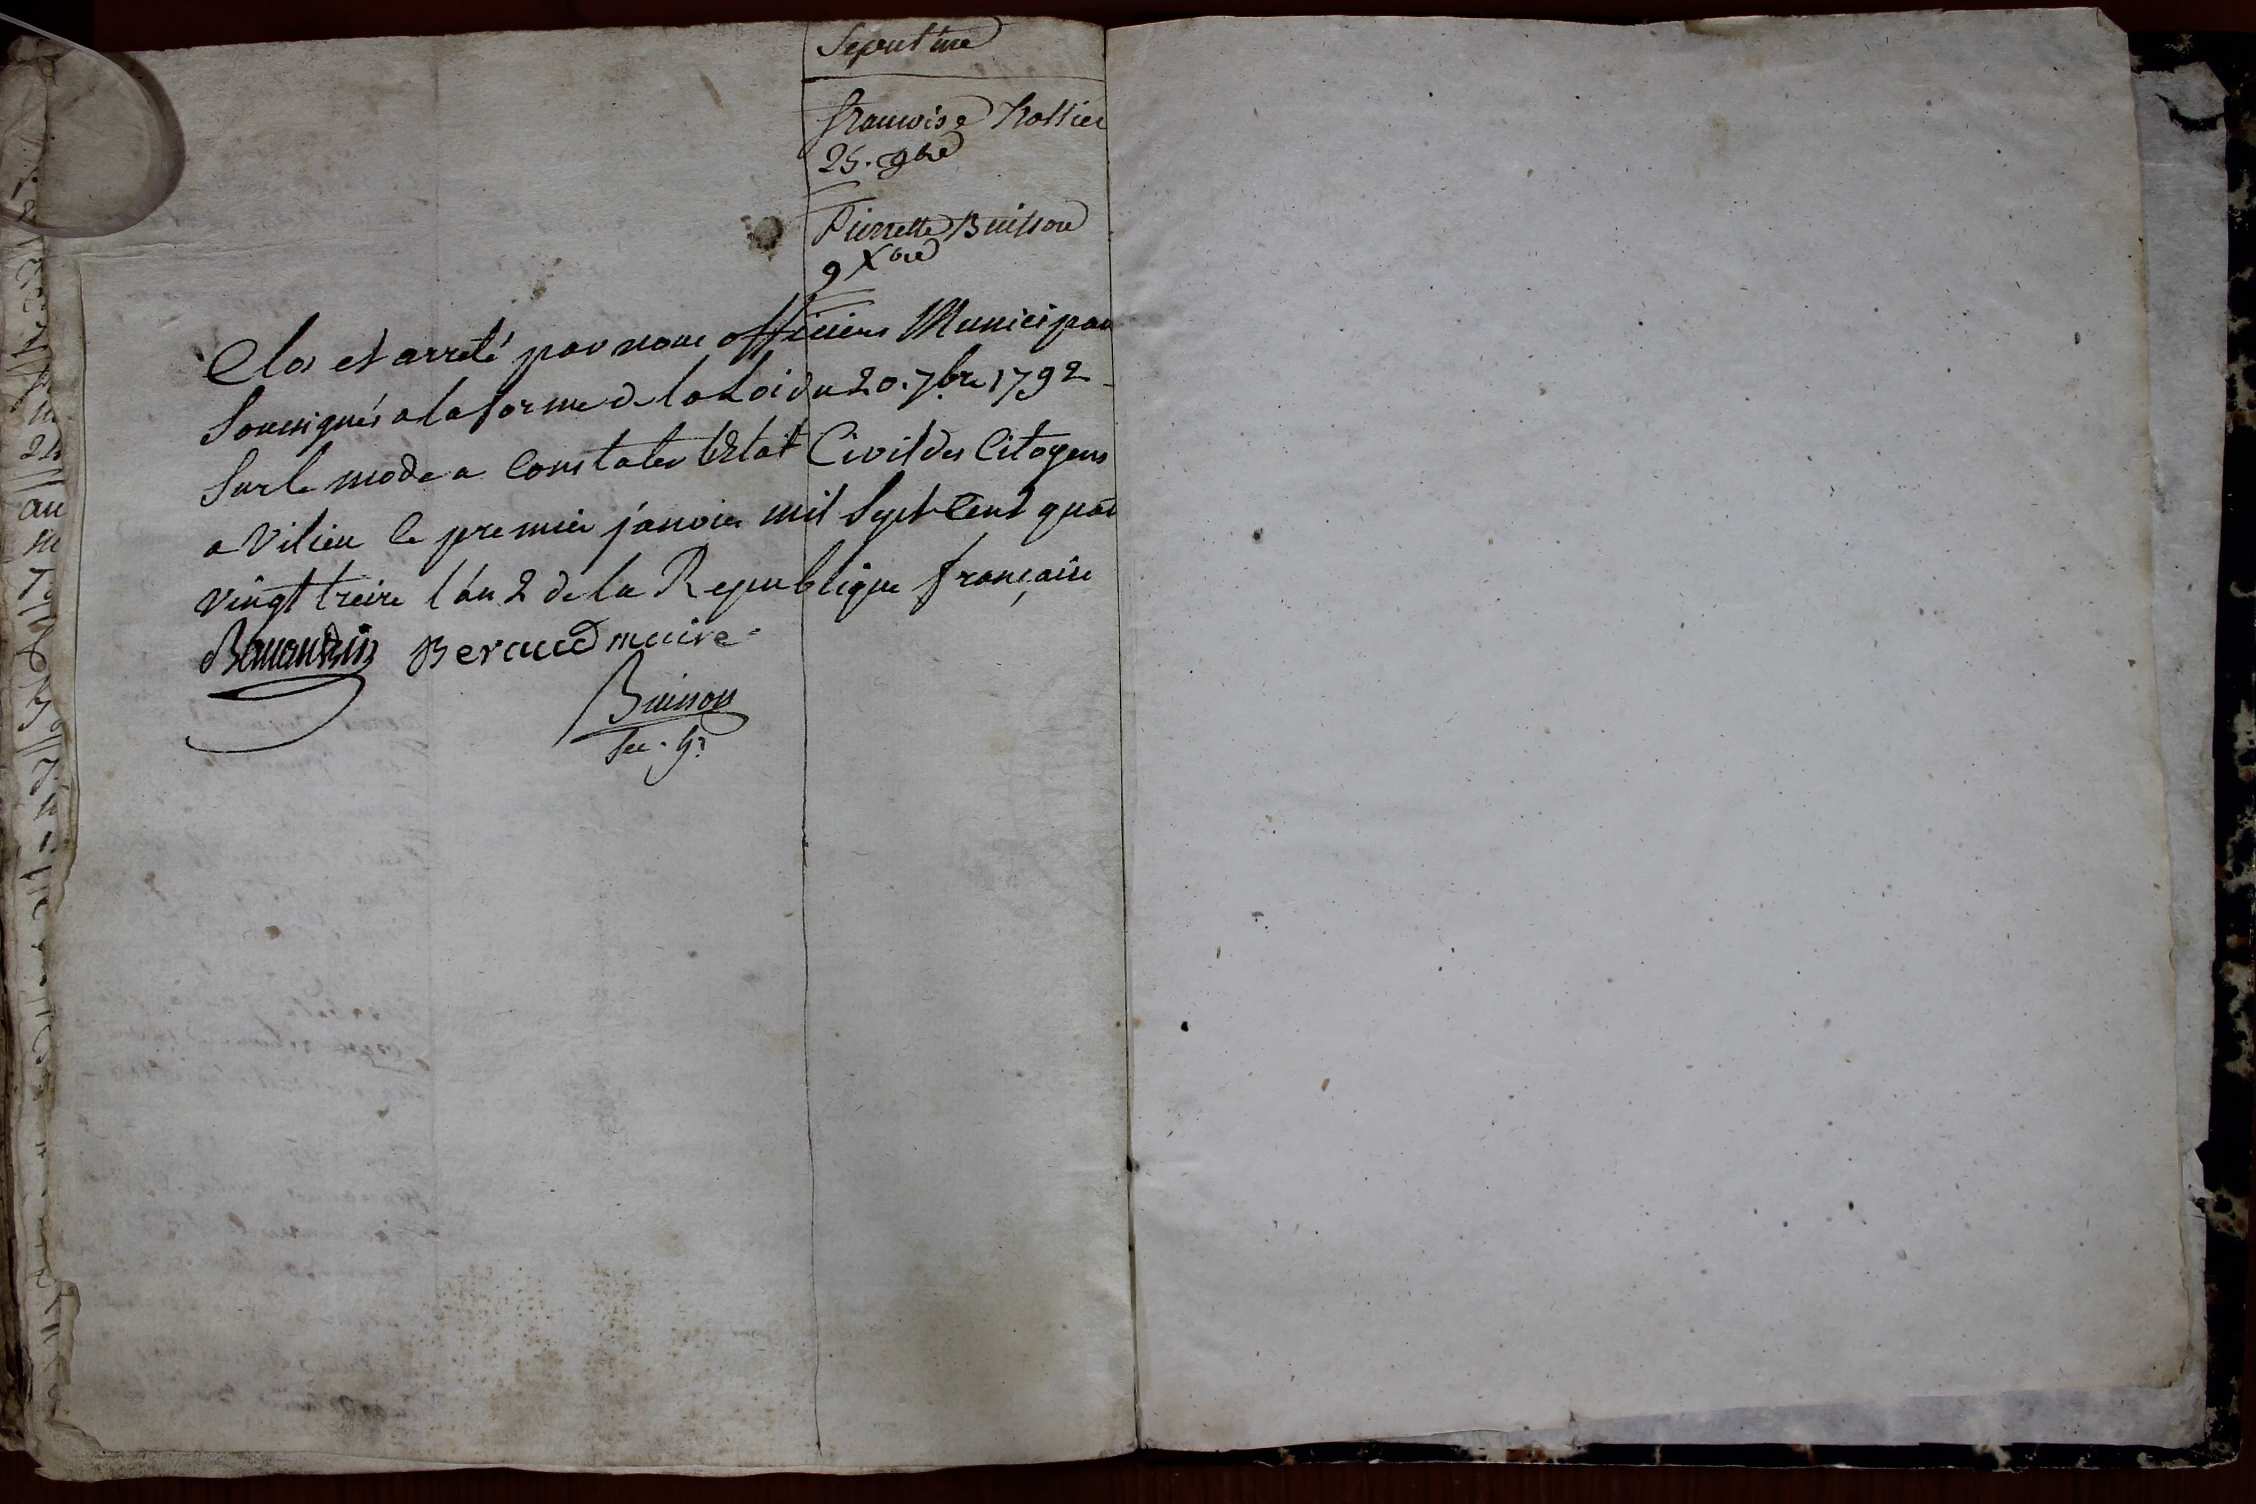 Sepulture
francoise
25. 9bre
Pierrette Buisson
9 Xbre
Clos et arreté par nous officiers Municipau
Soussignés a la forme de la Loi du 20. 7bre 1792
Sur le mode a Constater l'Etat Civil des Citoyens
a Vilieu le premier janvier mil Sept Cent quat
vingt treize l'an 2 de la Republique française
Beraud maire
Buisson
Sec. gr.